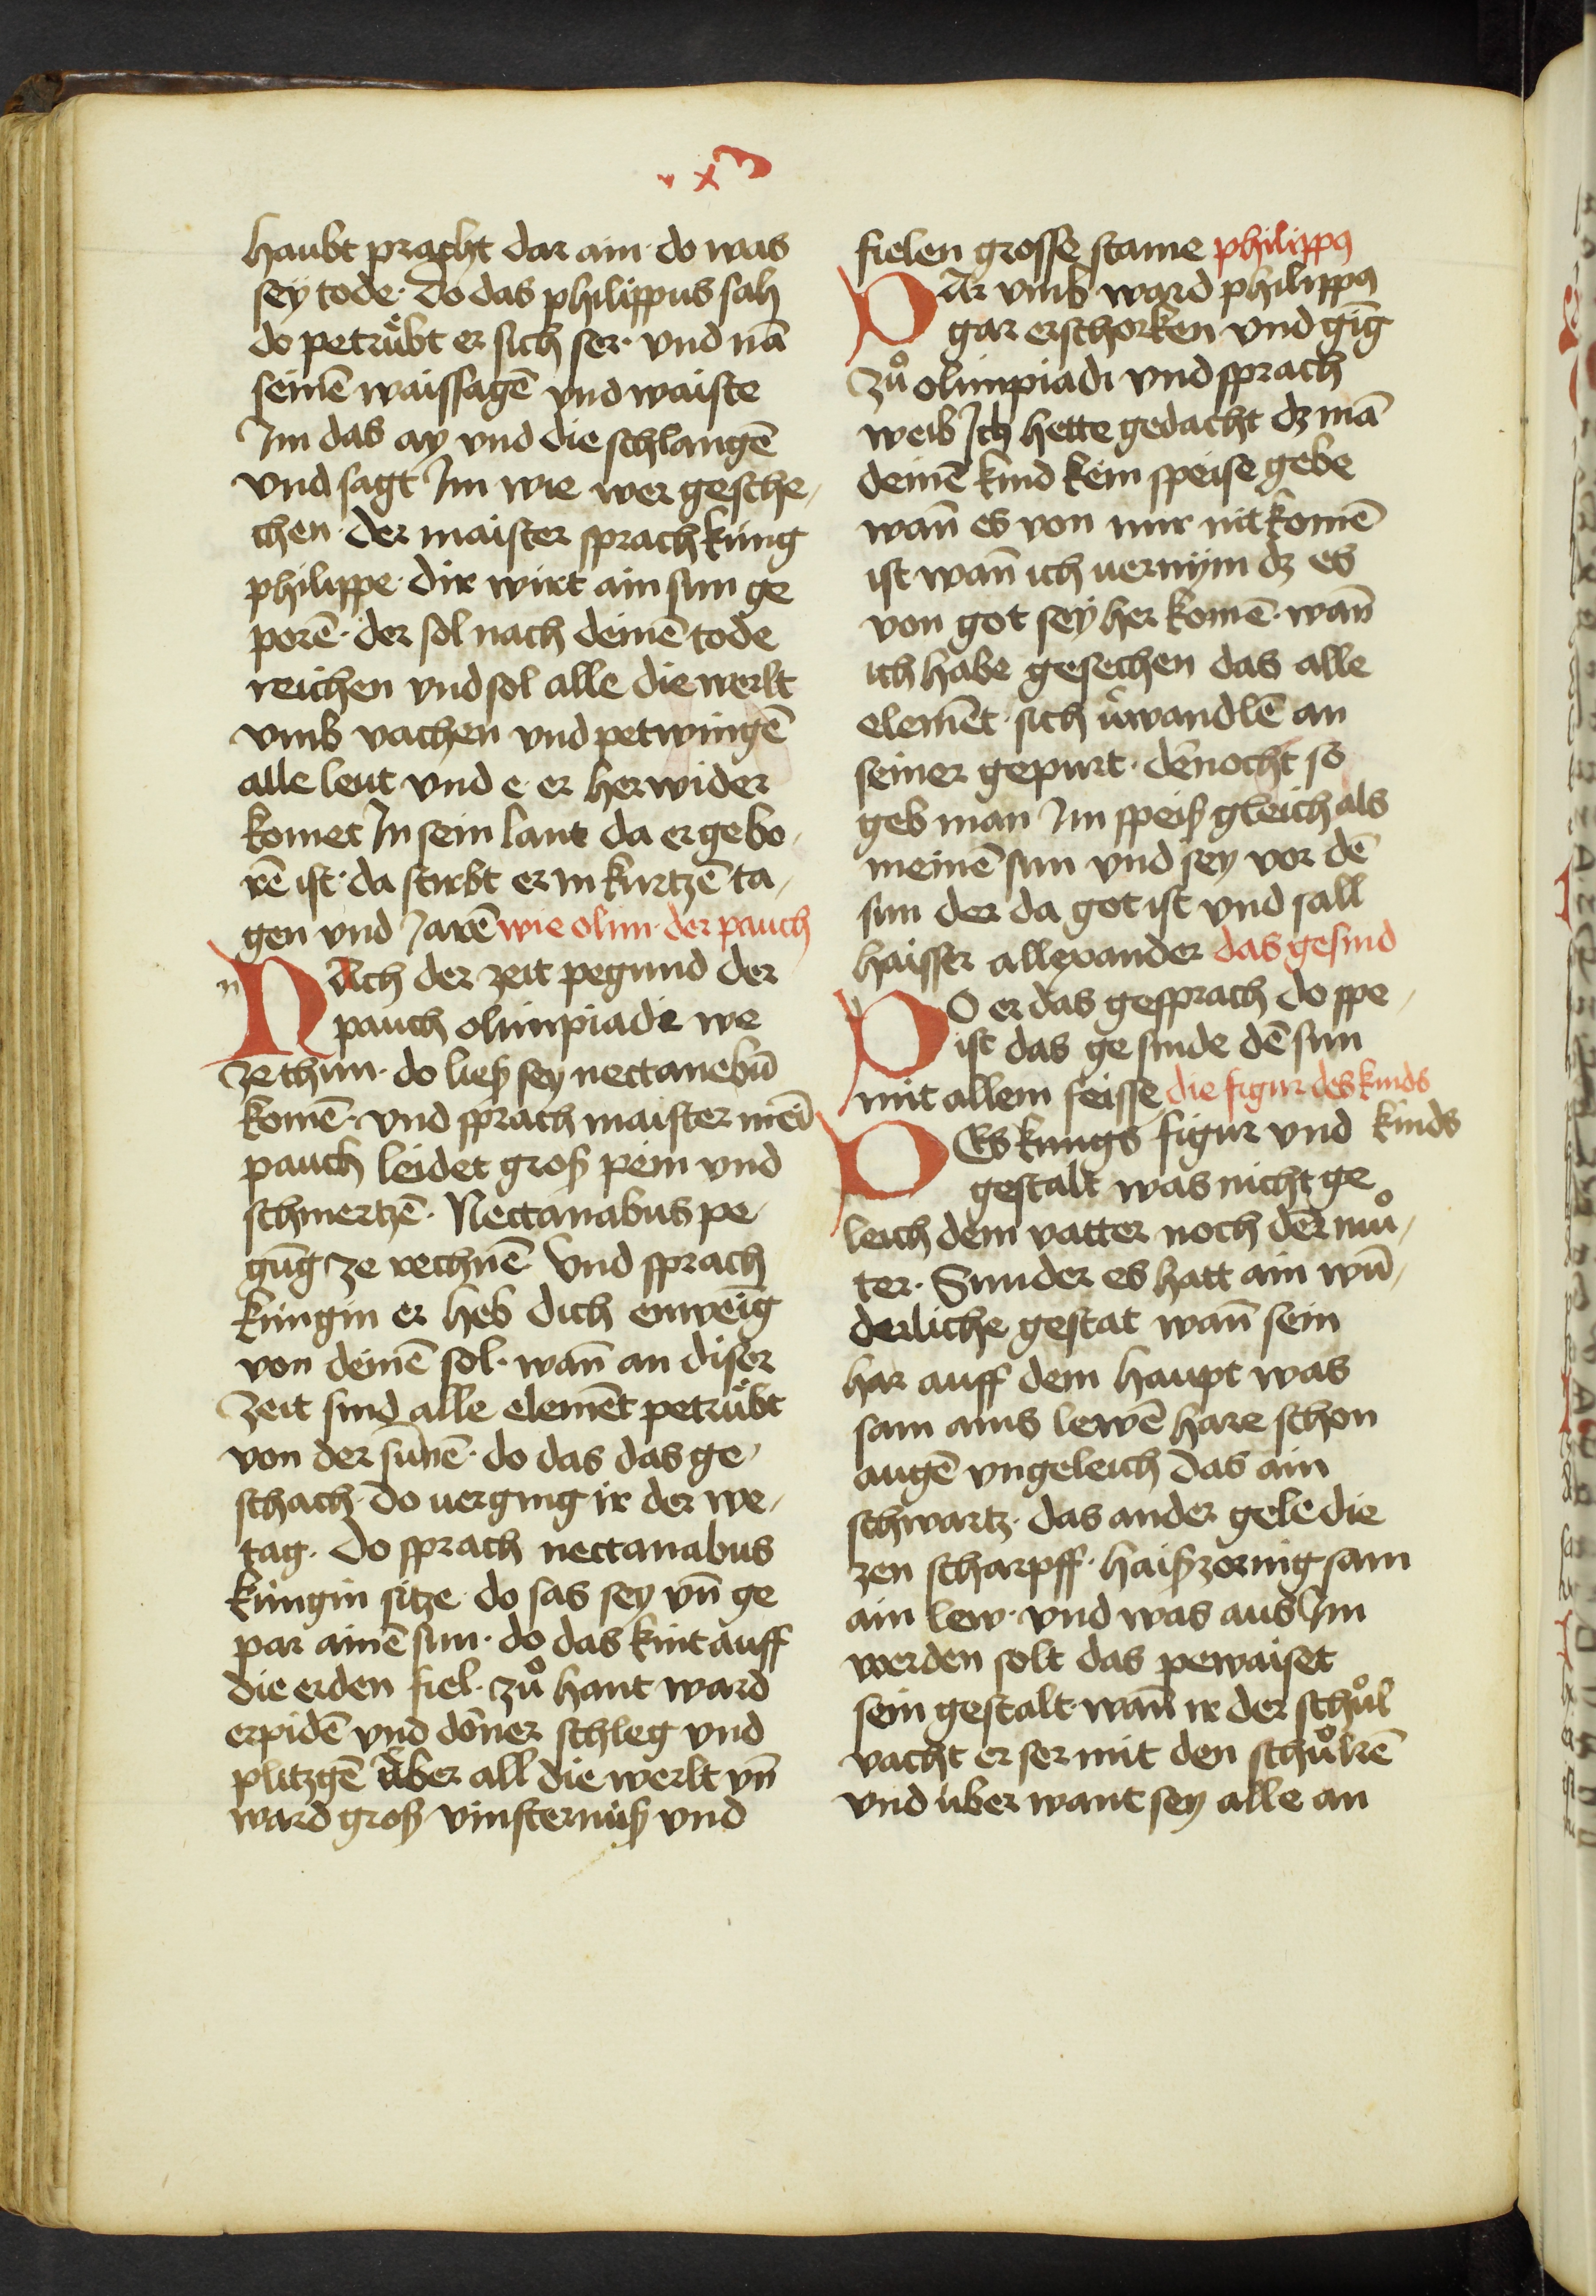 haubt pracht dar ain · do was
sey tode · do das philippus sah
do petrübt er sich ser · vnd nā
seinē waissagē vnd waiste
Im das ay vnd die schlangē
vnd sagt Im wie wer gesche-
chen · der maister sprach küng
philippe · dir wirt ain sun ge
porē · der sol nach deinē tode
reichen vnd sol alle die werlt
vmb vachen vnd petwingē
alle leut vnd e er her wider
komet In sein lant da er gebo-
rē ist · da stirbt er in kurtzē ta-
gen vnd Jarē wie olim · der pauch
NAch der zeit pegund der
pauch olimpiadi we
ze thun · do ließ sey nectanebū
komē · vnd sprach maister meī
pauch leidet groß pein vnd
schmertzē · Nectanabus pe-
gūg ze rechnē Vnd sprach
küngin er heb dich enweīg
von deinē sol · wañ an diser
zeit sind alle elemēt petrübt
von der sūnē · do das das ge-
schach · do uerging ir der we-
tag · do sprach nectanabus
küngin sitze · do sas sey vñ ge
par ainē sun · do das kint auff
die erden fiel · zů hant ward
erpidē vnd doner schleg vnd
plitzgē über all die werlt vñ
ward groß vinsternüß vnd
fielen grosse staine philippꝯ
DAr vmb ward philippꝯ
gar erschorken vnd gīg
zů olimpiadi vnd sprach
weib Ich hette gedacht dz mā
deinē kind kein speise gebe
wañ es von mir nit komē
ist wañ ich uernÿm dz es
von got seÿ her komē · wañ
ich habe gesechen das alle
elemēt sich üwandlē an
seiner gepurt · dēnocht so
geb man Im speiß gleich als
meinē sun vnd sey vor dē
sun der da got ist vnd sall
haisser allexander das gesind
DO er das gesprach do spe-
ist das gesinde dē sun
mit allem feisse die figur des kinds
DEs kungs figur vnd kinds
gestalt was nicht ge
leich dem vatter noch der mů-
ter · Sunder es hatt ain wū-
derliche gestat wañ sein
har auff dem haupt was
sam ains lewē hare schon
augē vngeleich das ain
schwartz · das ander gele die
zen scharpff · haiß zornig sam
ain lew · vnd was aus Im
werden solt das pewaiset
sein gestalt · wañ ir der schůl
vacht er ser mit den schůlrē
vnd über want sey alle an